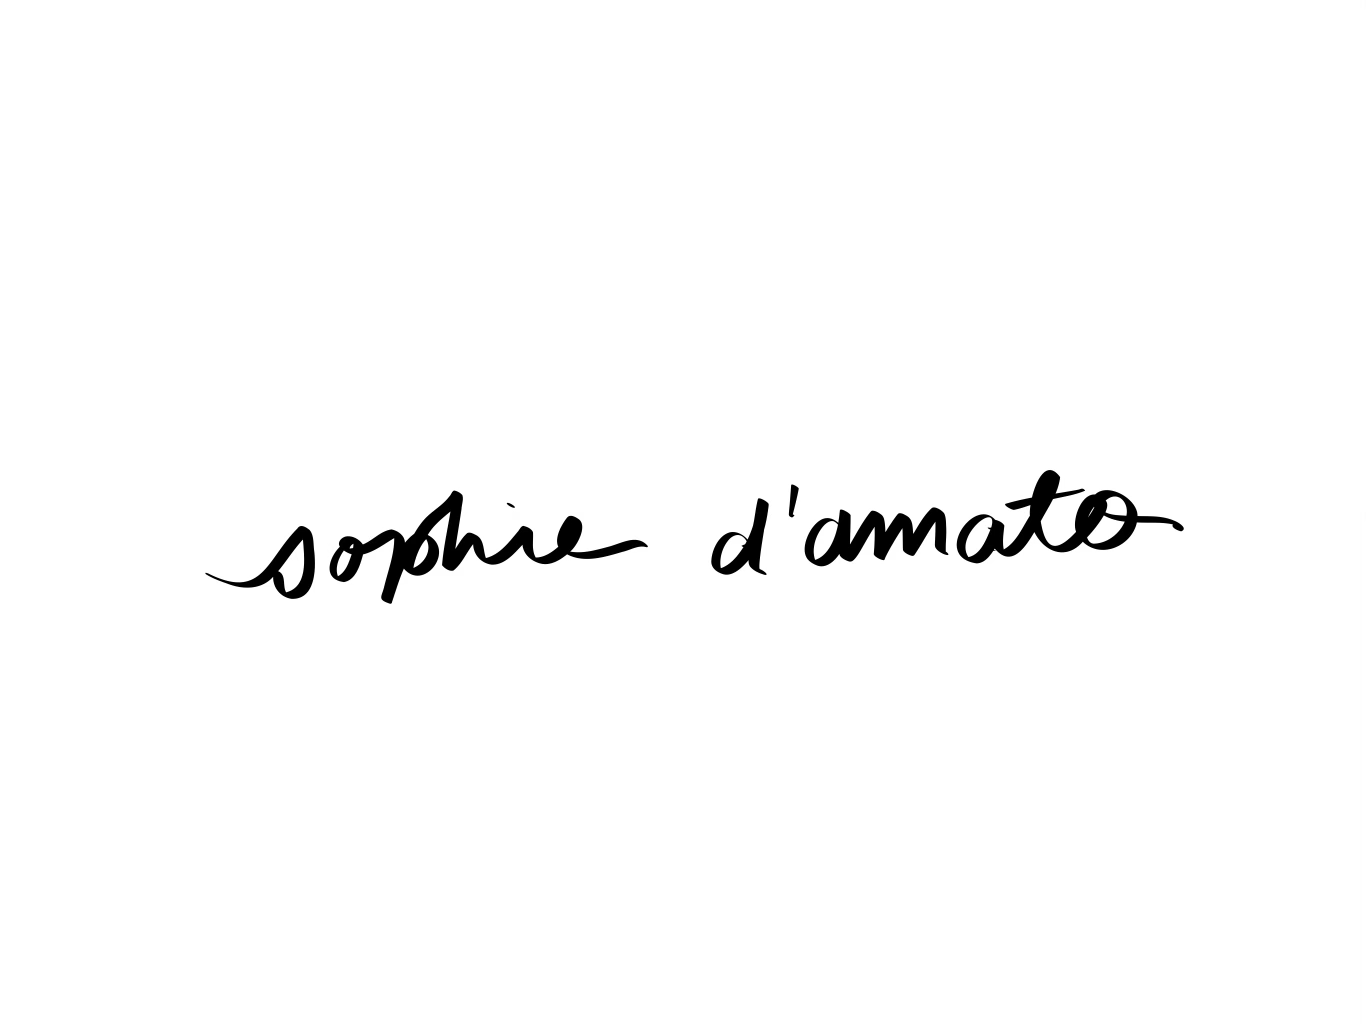 sophie d'amato